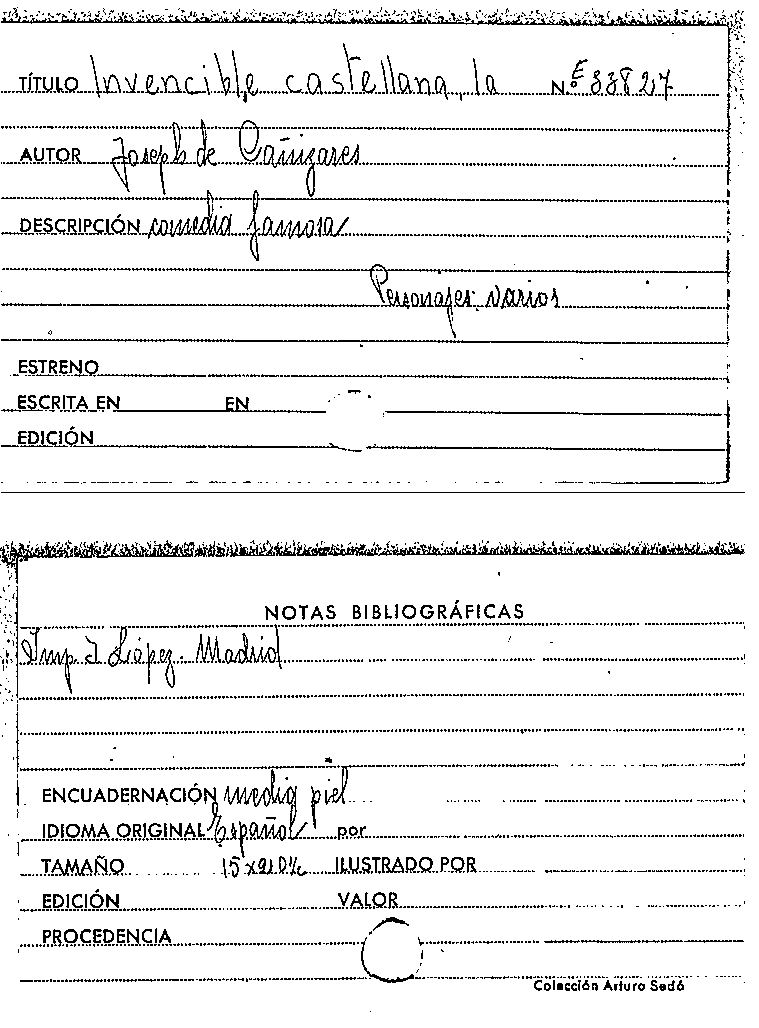 TÍTULO Invencible castellana, la N.º E 33827
AUTOR Joseph de Cañizares
DESCRIPCIÓN comedia famosa
Personajes: varios
ESTRENO
ESCRITA EN EN
EDICIÓN
NOTAS BIBLIOGRÁFICAS
Imp. J López. Madrid
ENCUADERNACIÓN media piel
IDIOMA ORIGINAL Español por
TAMAÑO 15x21 ILUSTRADO POR
EDICIÓN VALOR
PROCEDENCIA
Colección Arturo Sedó